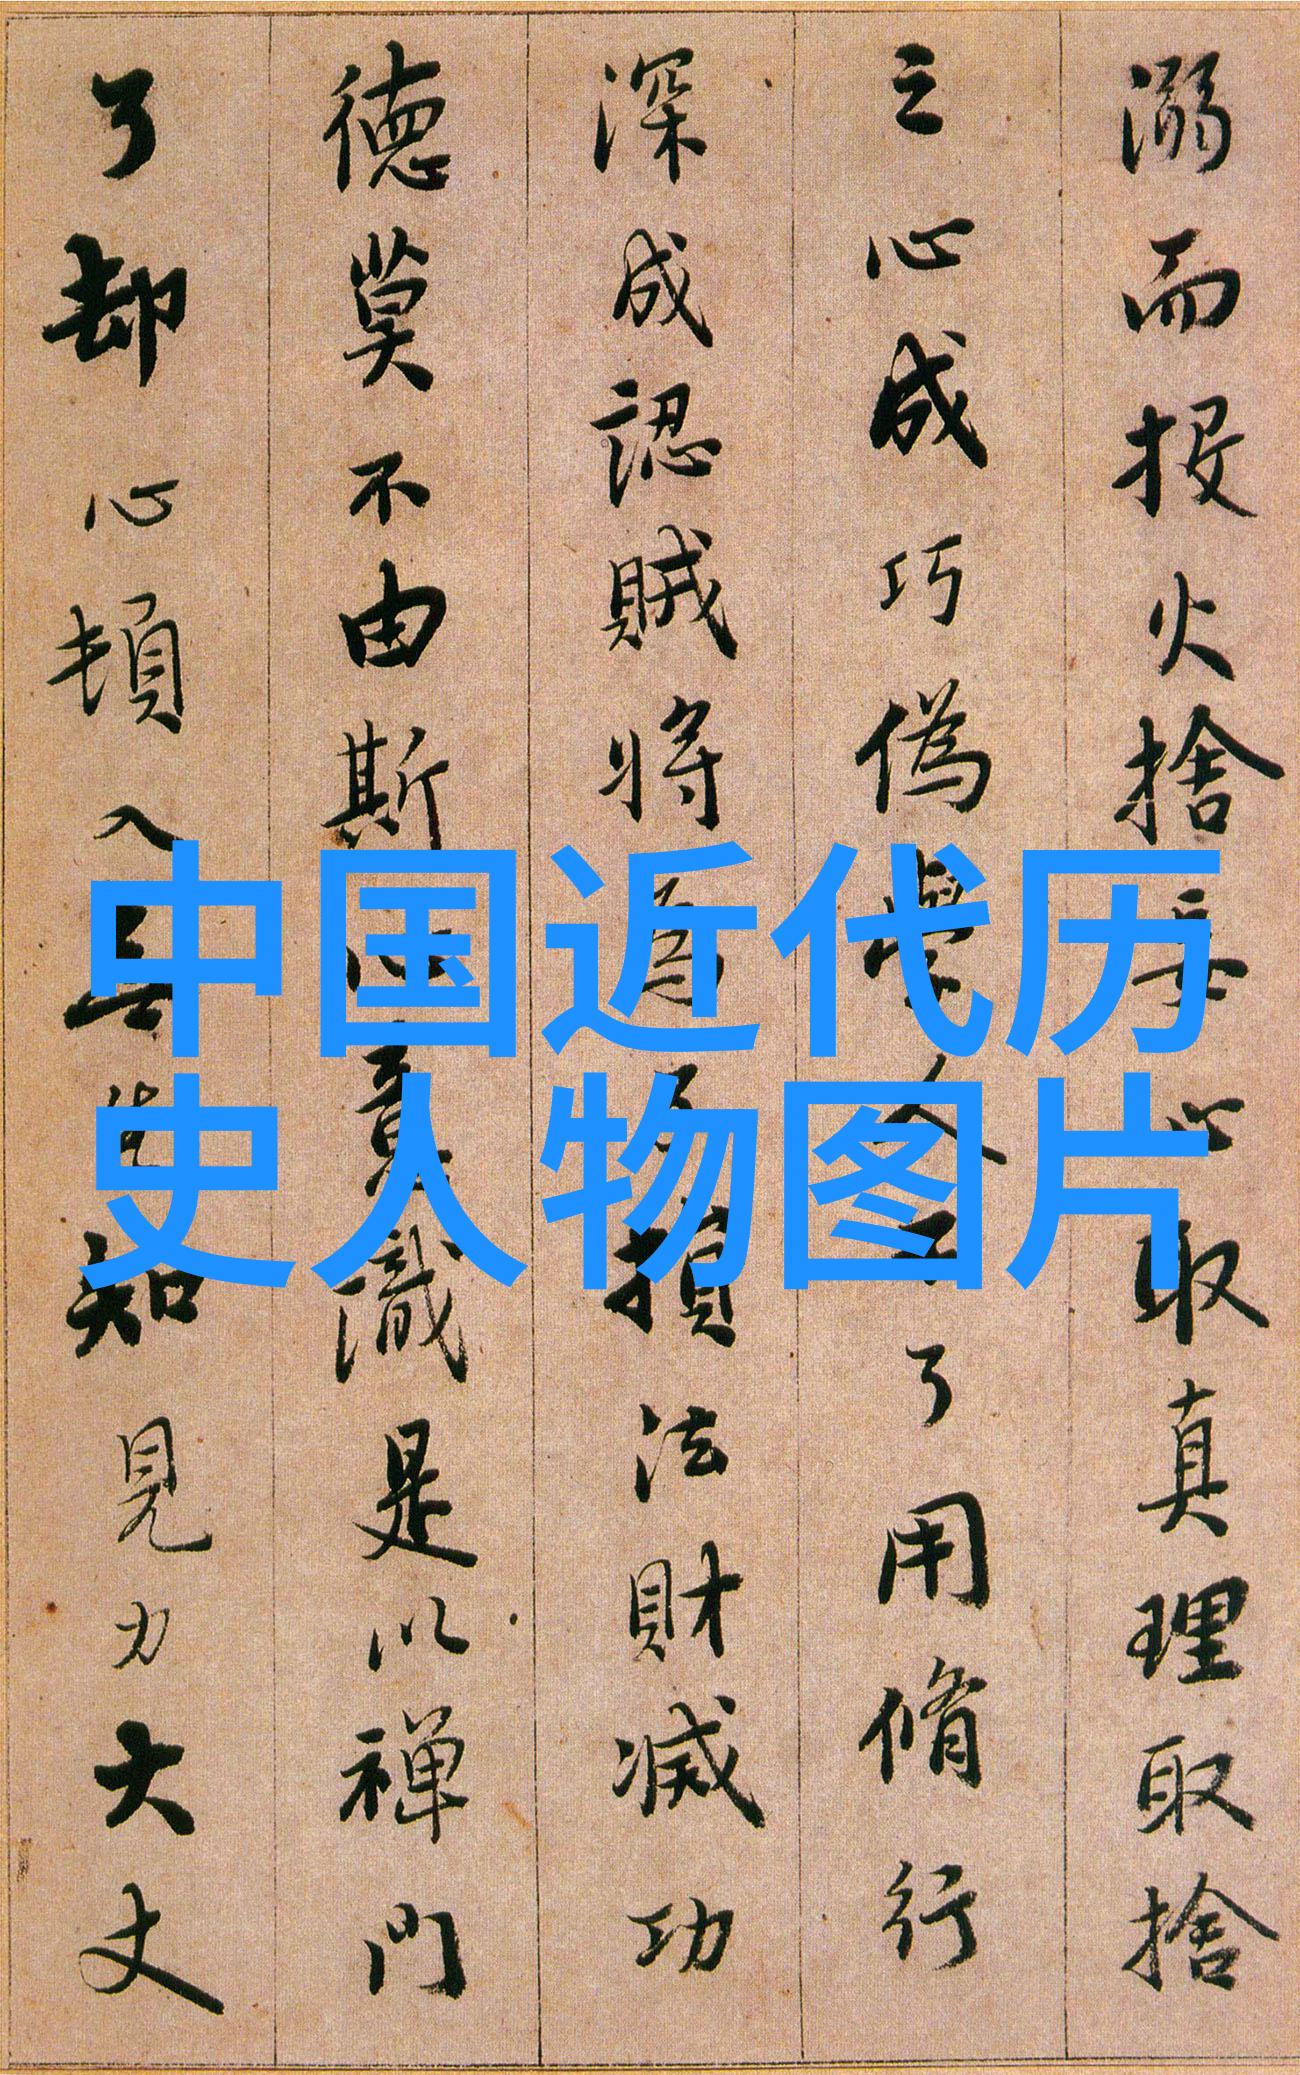 溺而投火捨妄心取真理取捨
之心成巧偽學人不了用脩行
深成認賊將為子損法財滅功
德莫不由斯心意識是以禅門
了却心頓入無生知見力大丈
中国近代历
史人物图片